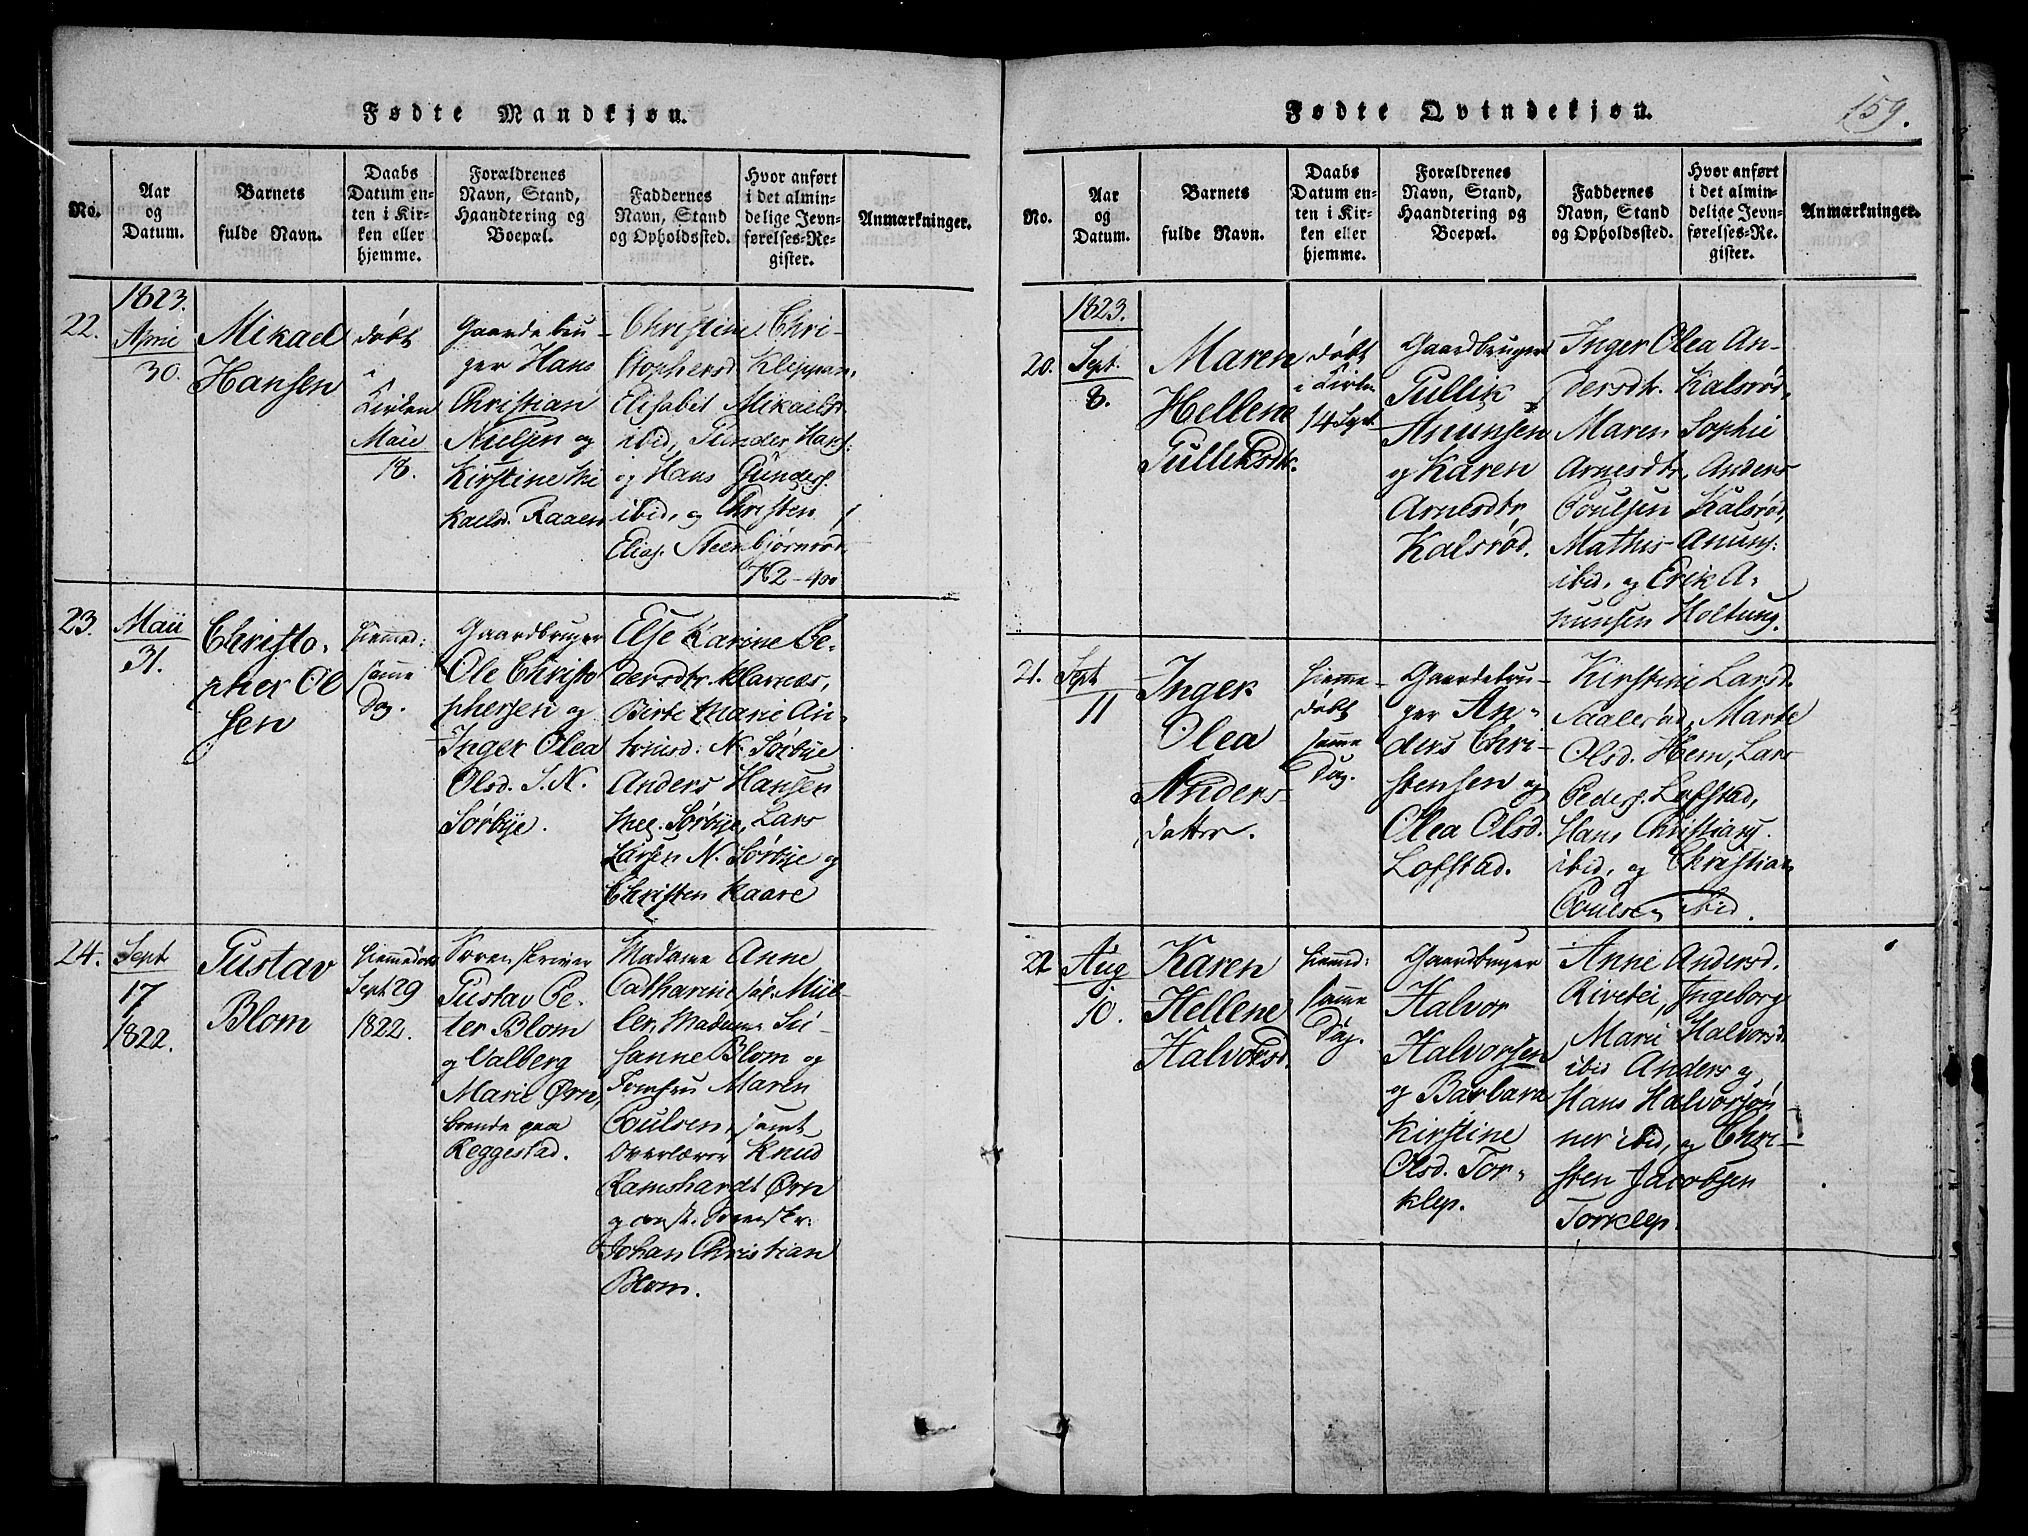 Fødte Mandkjøn.
No.
Aar
og
Datum.
Barnets
fulde Navn.
Daabs
Datum en-
ten i Kir-
ken eller
hjemme.
Forældrenes
Navn, Stand,
Haandtering og
Boepæl.
Faddernes
Navn, Stand
og Opholdssted.
Hvor anført
i det almin-
delige Jevn-
førelses-Re-
gister.
Anmærkninger.
22.
1823.
April
30.
Mikael
Hansen
døbt
i
Kirken
Maii
18.
Gaardebru-
ger Hans
Christian
Nielsen og
Kirstine Mi
kaelsd. Raaen
Christine Chri-
stophersd Kleppan,
Elisabet Mikaelsd.
ibid, Gunder Hans:
og Hans Gunders.
ibid, og Christen
Elias. Steenbjørnrød.
762-400
23.
Maii
31.
Christo-
pher Ol
sen
hiemmed:
samme
Dag.
Gaardbruger
Ole Christo
phersen og
Inger Olea
Olsd. S. N.
Sørbye.
Else Karine Pe-
dersdtr. Klarnæs,
Birte Marie An-
tonisd: N. Sørbye
Anders Hansen
Mel. Sørbye, Lars
Larsen N. Sørbye og
Christen Kaare
24.
Sept
17
1822.
Gustav
Blom
hiemmedøbt
Sept 29
1822.
Sorenskriver
Gustav Pe-
ter Blom
og Valberg
Marie Ørn,
boende paa
Reggestad.
Madame Anne
Catharine sal. Mül-
ler, Madame Su-
sanne Blom og
Jomfru Maren
Poulsen, samt
Overlærer Knud
Ramshardt Ørn
og const. Sorenskr:
Johan Christian
Blom.
Fødte Qvindekjøn.
159.
No.
Aar
og
Datum.
Barnets
fulde Navn.
Daabs
Datum en-
ten i Kir-
ken eller
hjemme.
Forældrenes
Navn, Stand,
Haandtering og
Boepæl.
Faddernes
Navn, Stand
og Opholdssted.
Hvor anført
i det almin-
delige Jevn-
førelses-Re-
gister.
Anmærkninger.
1823.
20.
Sept.
8.
Maren
Hellene
Gulliksdtr.
døbt
i Kirken
14 Sept
Gaardbruger
Gullik
Anunsen
og Karen
Arnesdtr
Kalsrød.
Inger Olea An-
dersdtr. Kalsrød,
Maren Sophie
Arnesdtr, Anders
Poulsen Kalsrød,
Mathis Anuns:
ibid, og Erik A-
nunsen Holtung.
21.
Sept
11
Inger
Olea
Anders-
datter.
hiemme-
døbt
samme
Dag.
Gaardebru-
ger An-
ders Chri-
stensen og
Olea Olsd.
Lofstad.
Kirstine Larsd.
Saalerød, Marte
Olsd. Hem, Lars
Peders. Lofstad,
Hans Christians.
ibid, og Christian
Poulsen ibid.
22
Aug
10.
Karen
Hellene
Halvorsd.
hiemd:
samme
Dag.
Gaardbruger
Halvor
Halvorsen
og Barbara
Kirstine
Olsd. Tor-
klep.
Anne Andersd.
Rivetei, Ingeborg
Marie Halvorsd.
ibid Anders og
Hans Halvorsøn
ner ibid, og Chri-
sten Jacobsen
Torklep.